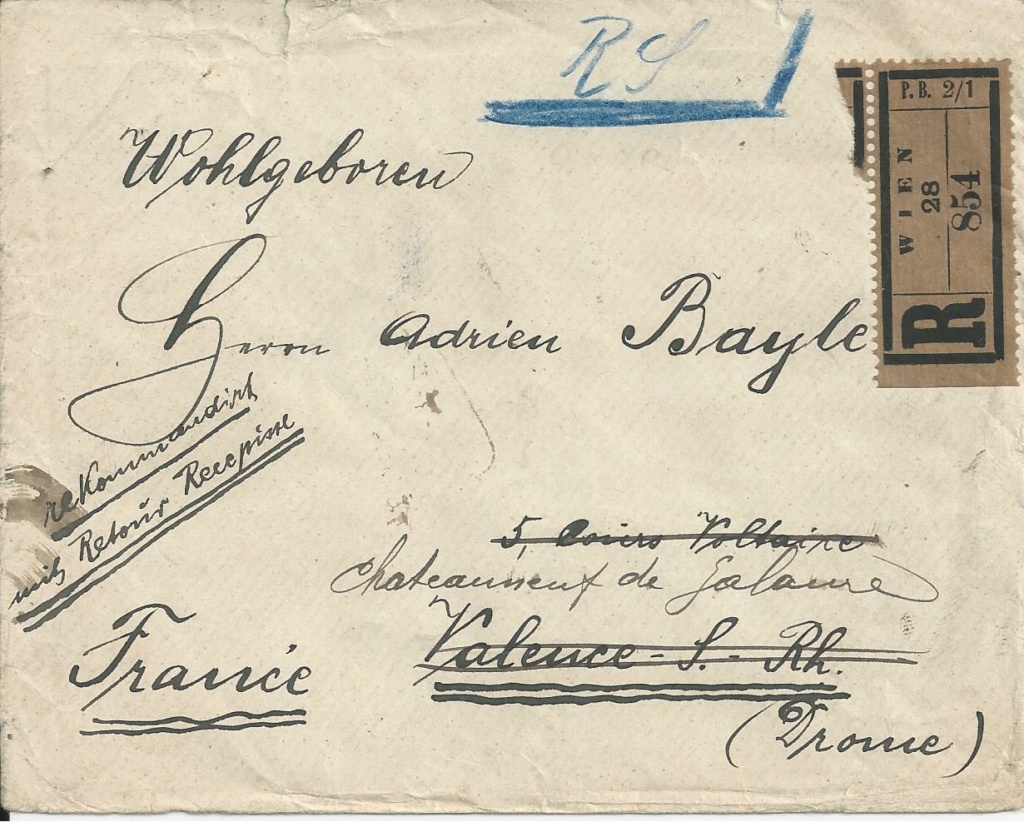 RS
P.B. 2/1
WIEN
28
854
R
Wohlgeboren
Herrn Adrien Bayle
rekommandirt
mit Retour Recepisse
5, Cours Voltaire
Chateauneuf de Galaure
Valence - S. - Rh.
France
(Drome)